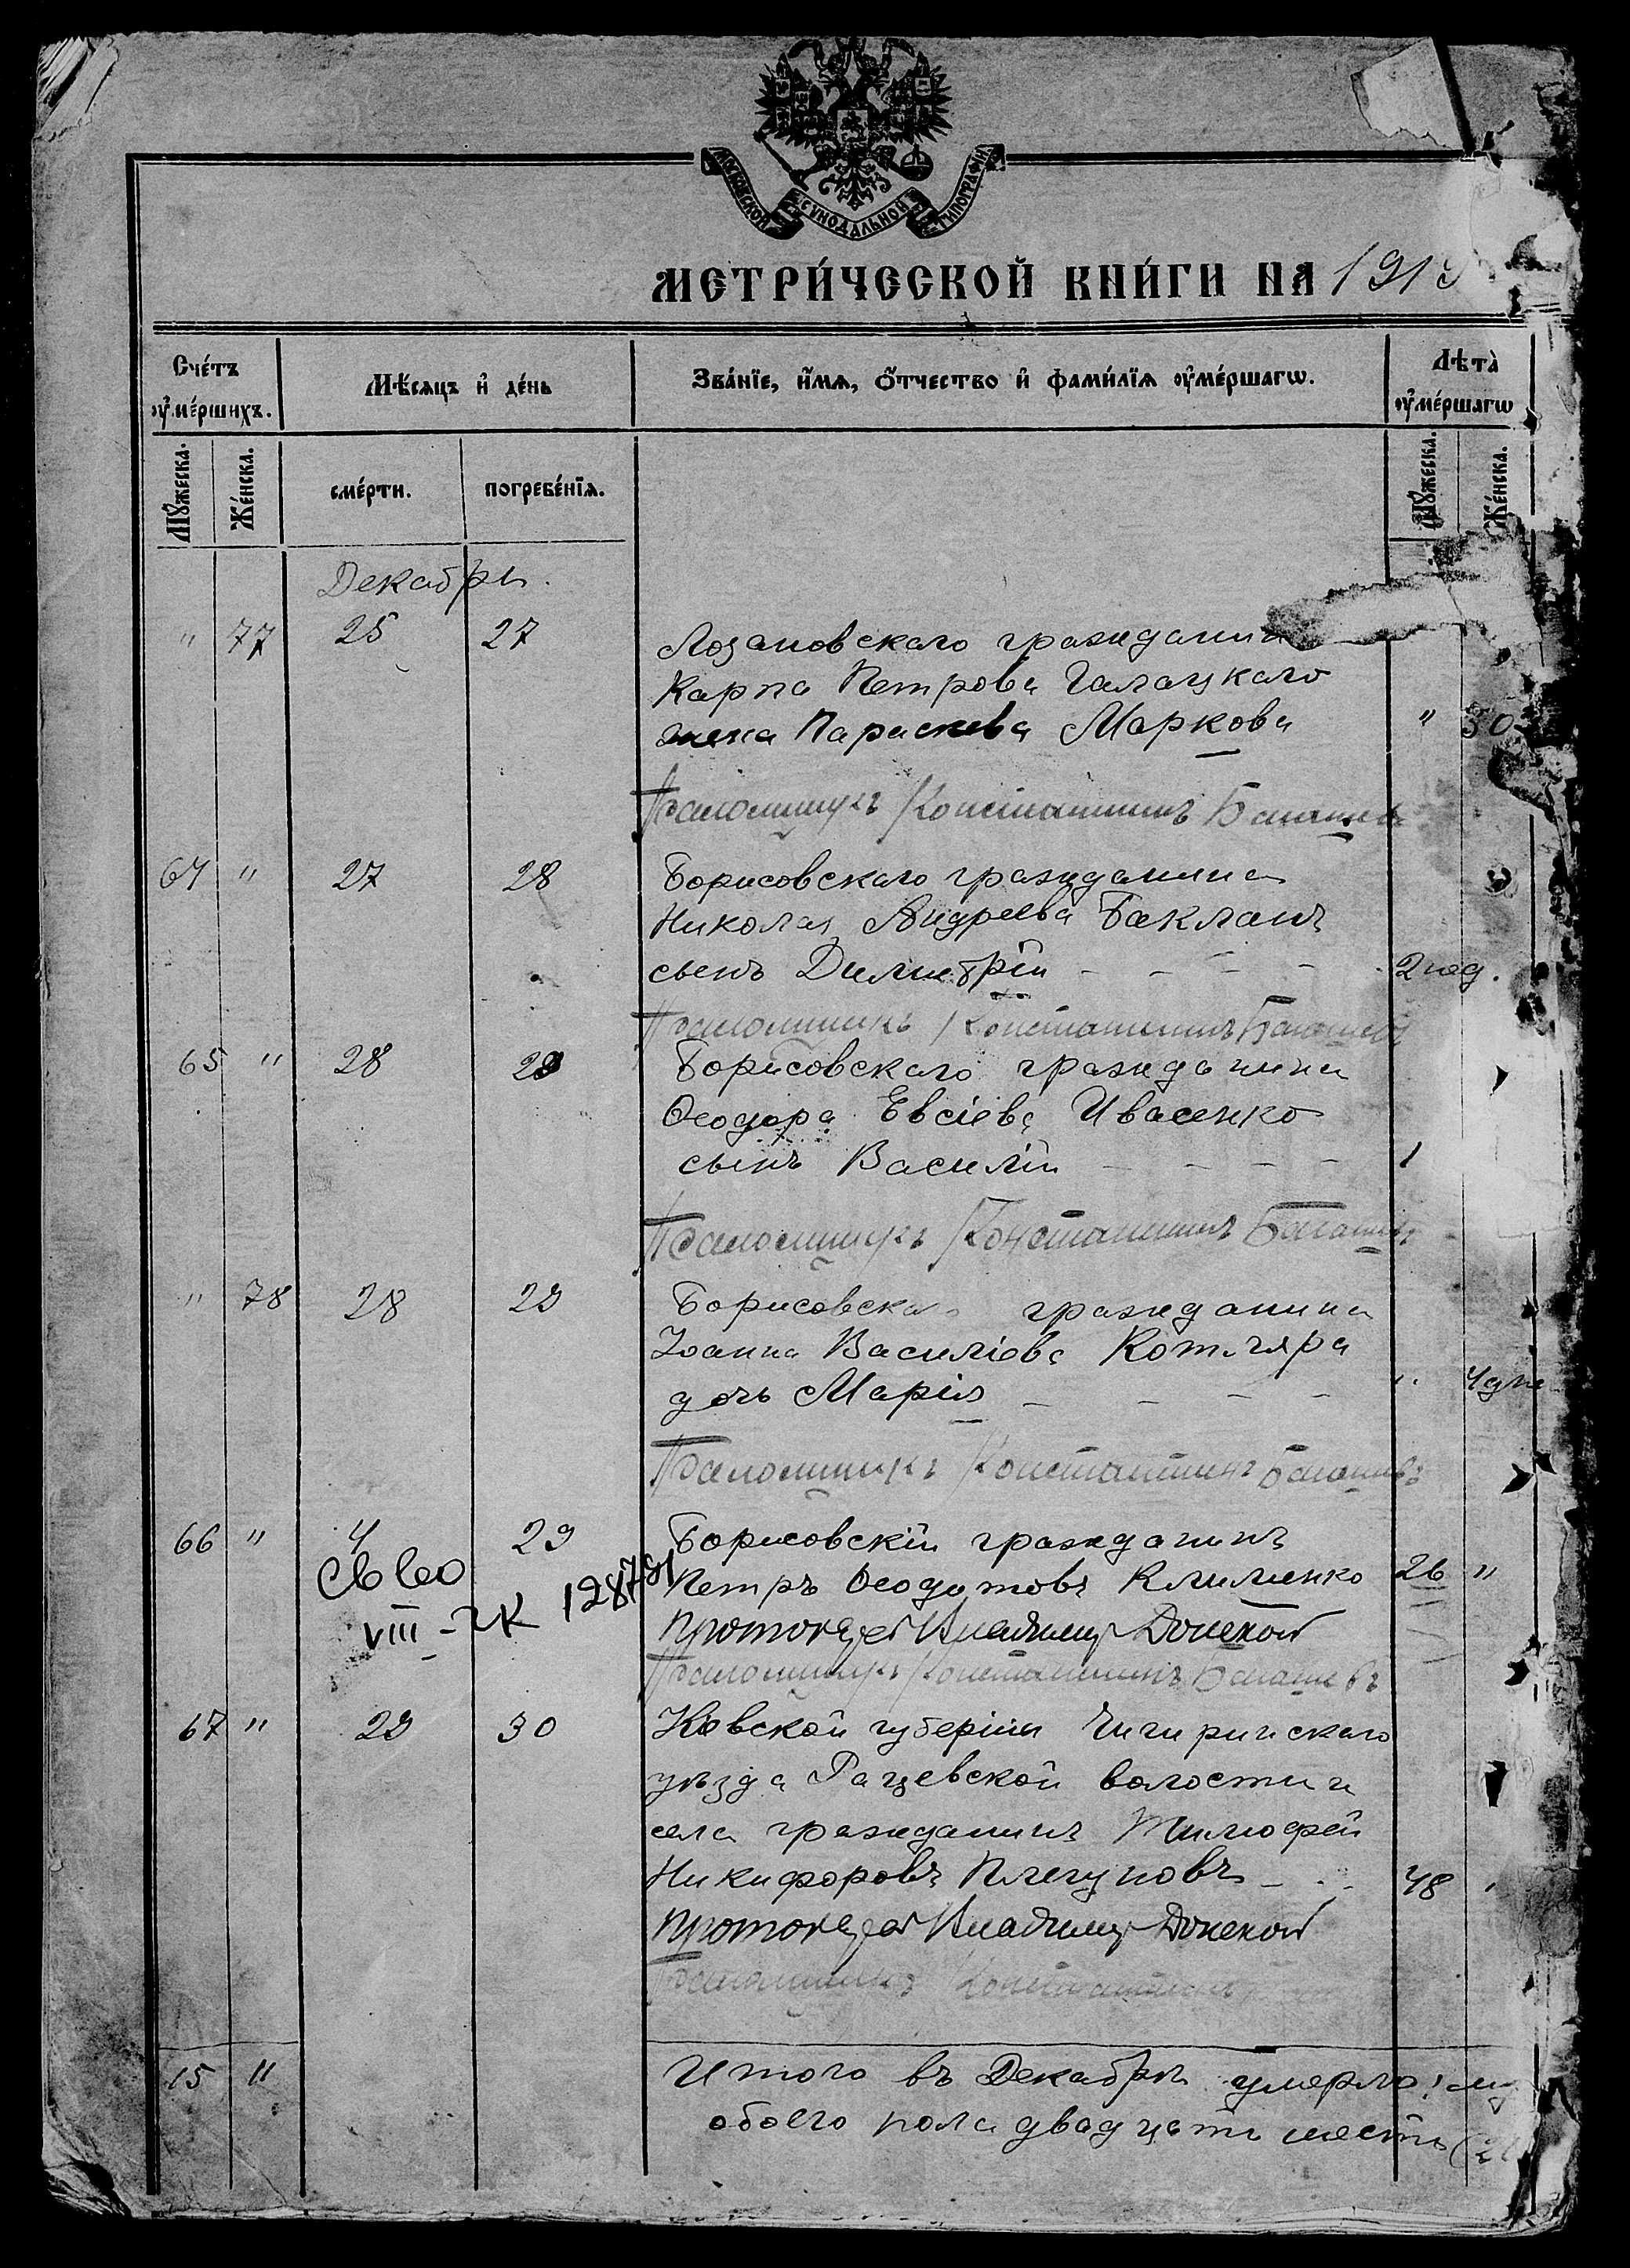 МОСКОВСКОЙ СУНОДАЛЬНОЙ ТИПОГРАФІИ
МЕТРИ́ЧЕСКОЙ КНИ́ГИ НА 191
Сче́тъ ᲂу҆ме́ршихъ.
Мѣ́сяцъ и҆ де́нь
Зва́нїе, и҆́мѧ, ѻ҆́тчество и҆ фами́лїѧ ᲂу҆ме́ршагѡ.
Лѣта̀ ᲂу҆ме́ршагѡ
Мꙋ́жеска.
Же́нска.
сме́рти.
погребе́нїѧ.
Мꙋ́жеска.
Же́нска.
Декабрь.
" 77 25 27 Лозановскаго гражданина
Карпа Петрова Галацкаго
жена Параскева Маркова "
Псаломщикъ Константинъ
64 " 27 28 Борисовскаго гражданина
Николая Андреева Бакланъ
сынъ Димитрій - - - - 2 нед.
Псаломщикъ Константинъ
65 " 28 29 Борисовскаго гражданина
Ѳеодора Евсіева Ивасенко
сынъ Василій - - - - 1
Псаломщикъ Константинъ
" 78 28 29 Борисовска гражданина
Іоанна Василіева Котляра
дочь Марія - - - - " 4 дн
Псаломщикъ Константинъ
66 " 4 29 Борисовскій гражданинъ
Петръ Ѳеодотовъ Клименко 26 "
VIII-УК
Протоіерей Владимир Донской
Псаломщикъ Константинъ
67 " 29 30 Кіевской губерніи Чигиринскаго
уѣзда Рацевской волости и
села гражданинъ Тимофей
Никифоровъ Плегуновъ - - 48
Протоіерей Владимир Донской
Псаломщикъ Константинъ
15 11 Итого въ Декабрѣ умерло: м
обоего пола двадцать шесть (2